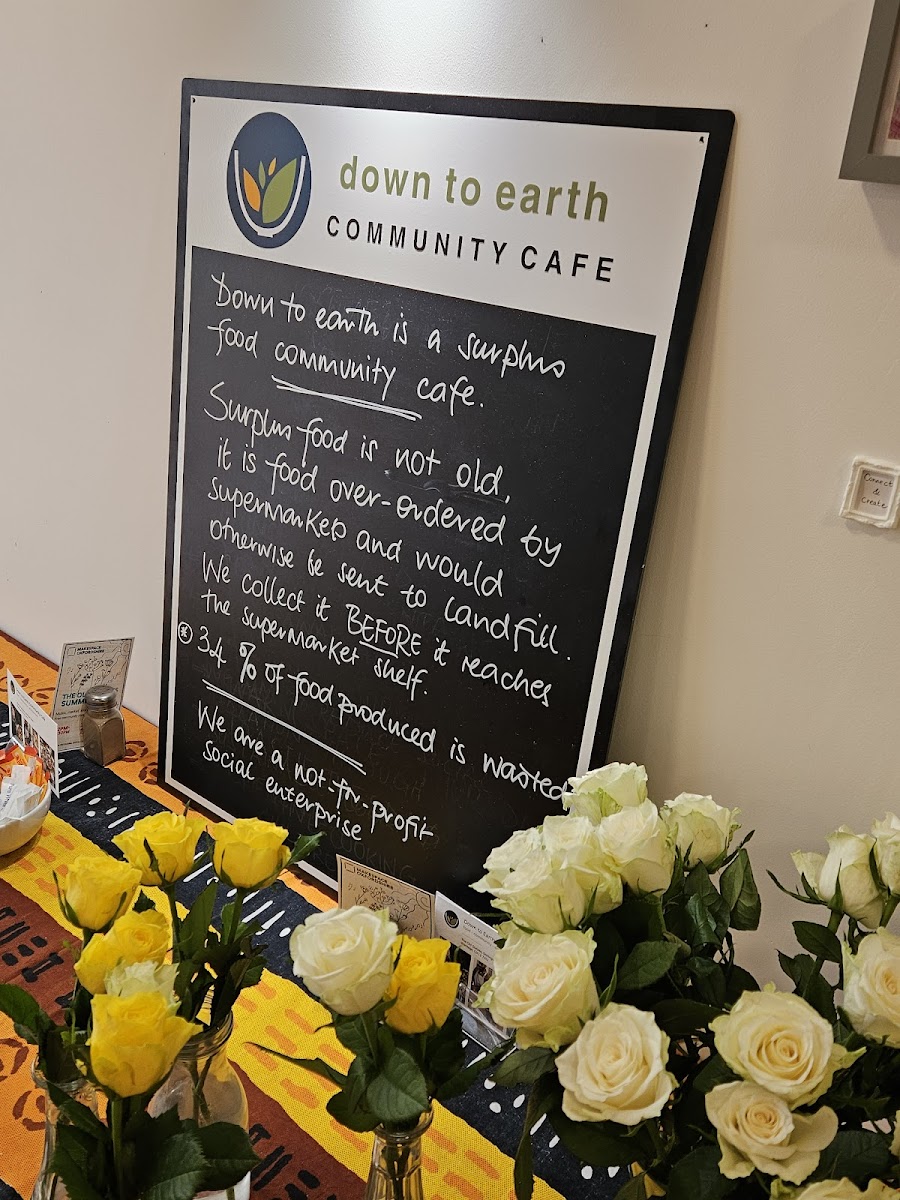 down to earth
COMMUNITY CAFE
Down to earth is a surplus
food community cafe.
Surplus food is not old,
it is food over-ordered by
supermarkets and would
otherwise be sent to landfill.
We collect it BEFORE it reaches
the supermarket shelf.
* 34 % of food produced is wasted
We are a not-for-profit
social enterprise
Connect
&
Create
MAKESPACE
THE
SUMM
MAKESPACE
Down to Earth